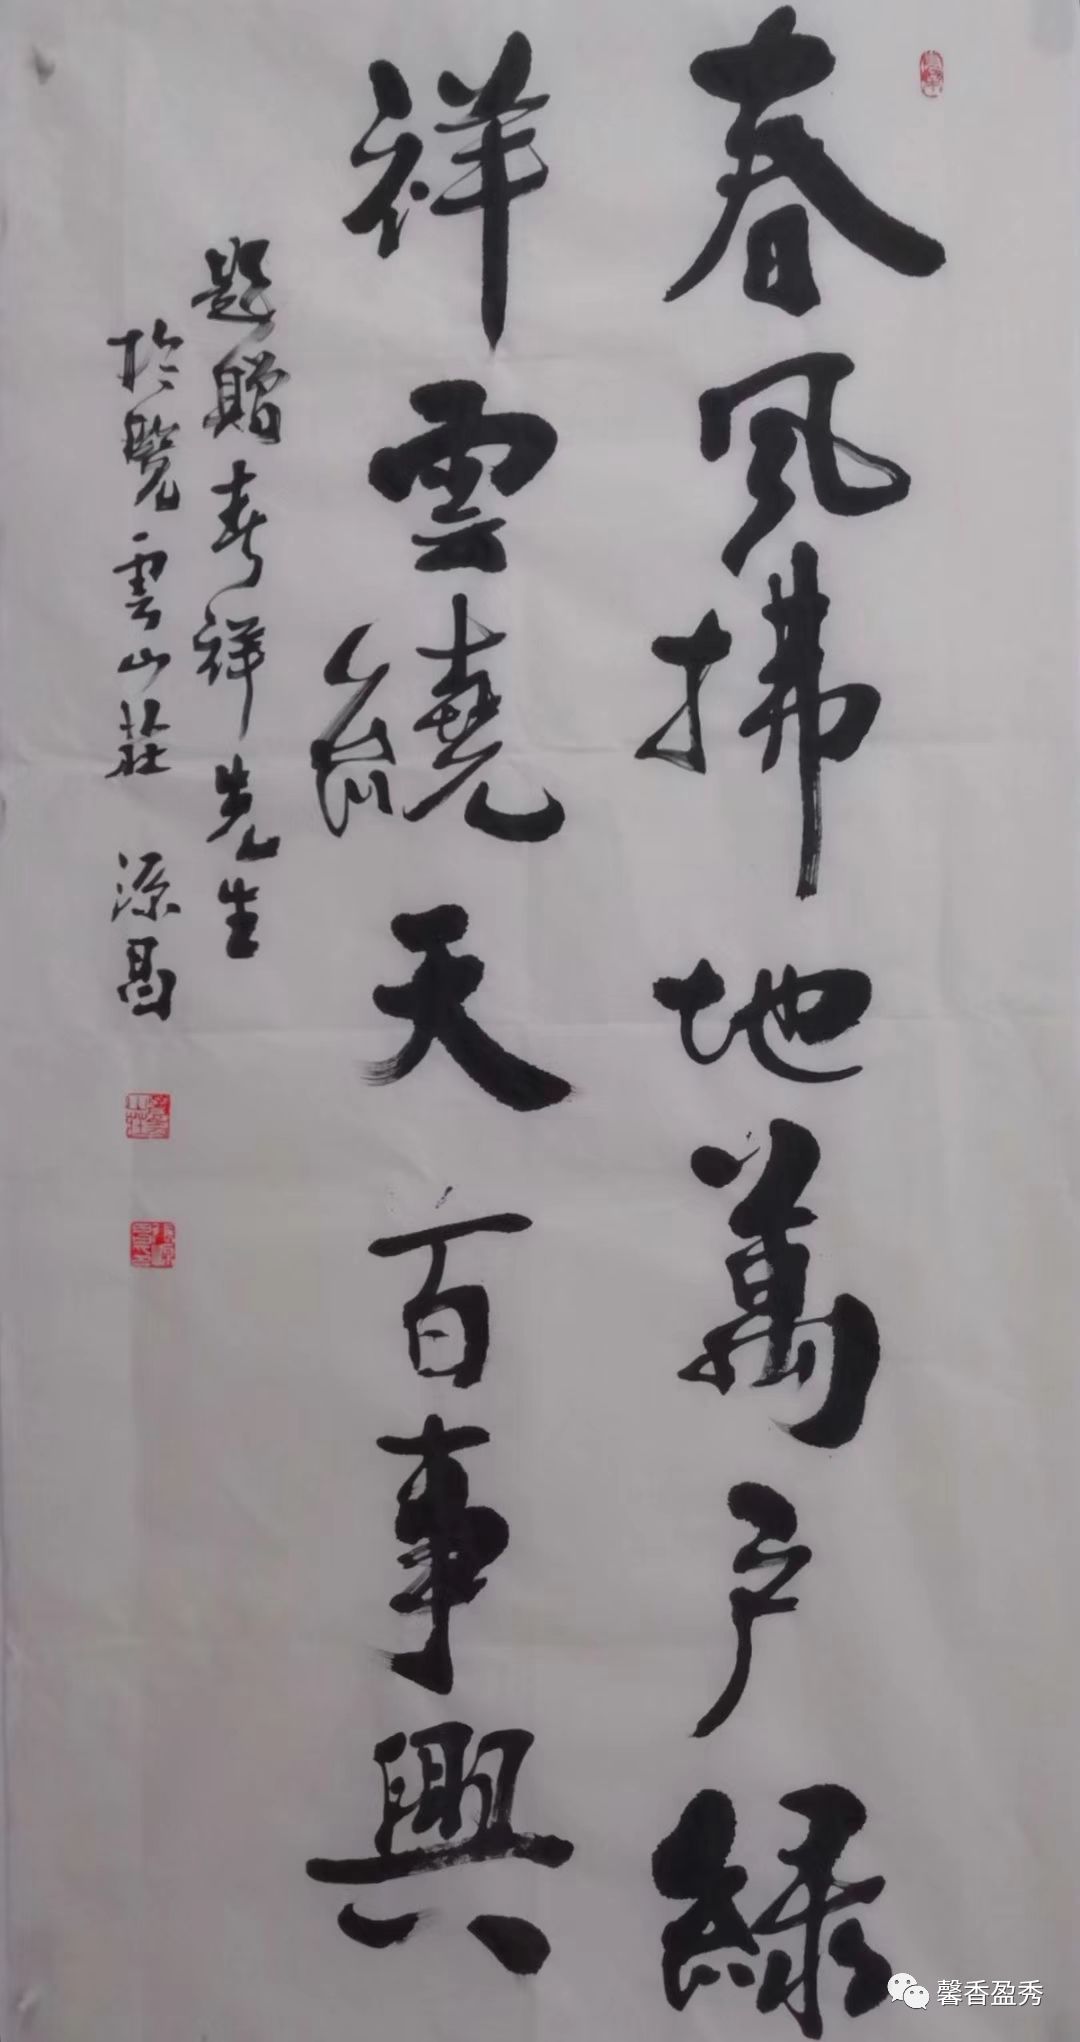 春風拂地萬戶綠
祥雲繞天百事興
題贈春祥先生
於覽雲山莊 源昌
馨香盈秀